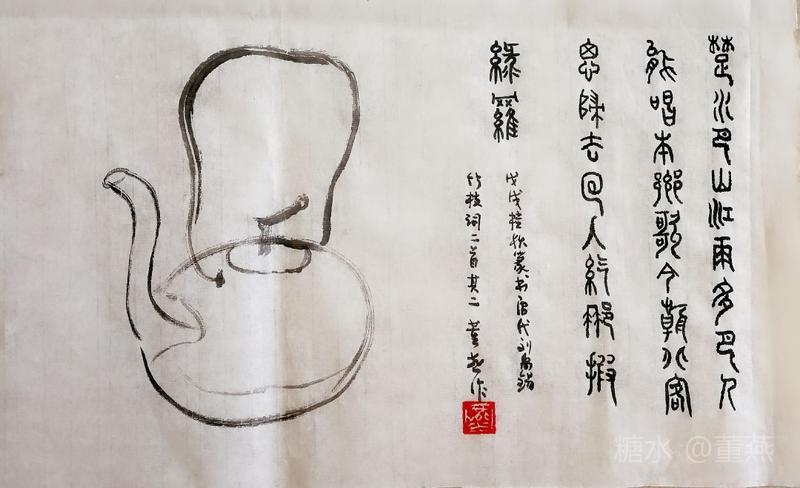 楚水巴山江雨多巴人
能唱本鄉歌今朝北客
思歸去回入紇那披
綠羅
戊戌桂秋篆书唐代刘禹锡
竹枝词二首其二 董燕作
糖水 @董燕